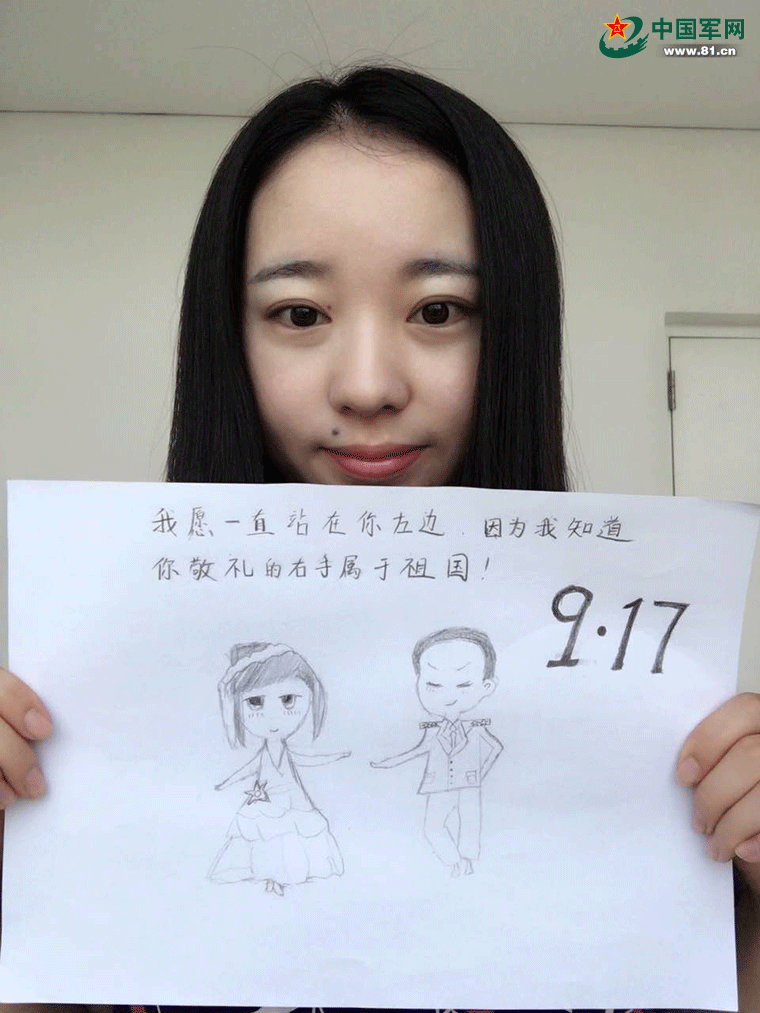 中国军网
www.81.cn
我愿一直站在你左边.因为我知道
你敬礼的右手属于祖国!
9·17